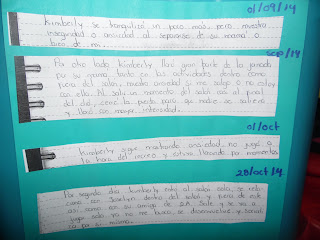 01/09/14
Kimberly se tranquilizó un poco más, pero muestra
inseguridad o ansiedad al separarse de su mamá o
bien de mí.
sep/14
Por otro lado Kimberly lloró gran parte de la jornada
por su mamá, tanto en las actividades dentro como
fuera del salón, muestra ansiedad si me salgo o no estoy
con ella. Ni sola un momento del salón casi al final
del día, cerré la puerta para que nadie se saliera
y lloró con mayor intensidad.
01/oct
Kimberly sigue mostrando ansiedad, no jugó a
la hora del recreo y estuvo llorando por momentos
28/oct/14
Por segundo día Kimberly entró al salón sola, se rela-
cionó con Jocelyn dentro del salón y fuera de este
así como con su amiga de 2°A. Sale y se va a
jugar sola ya no me busca, se desenvuelve y sociali-
za por sí misma.